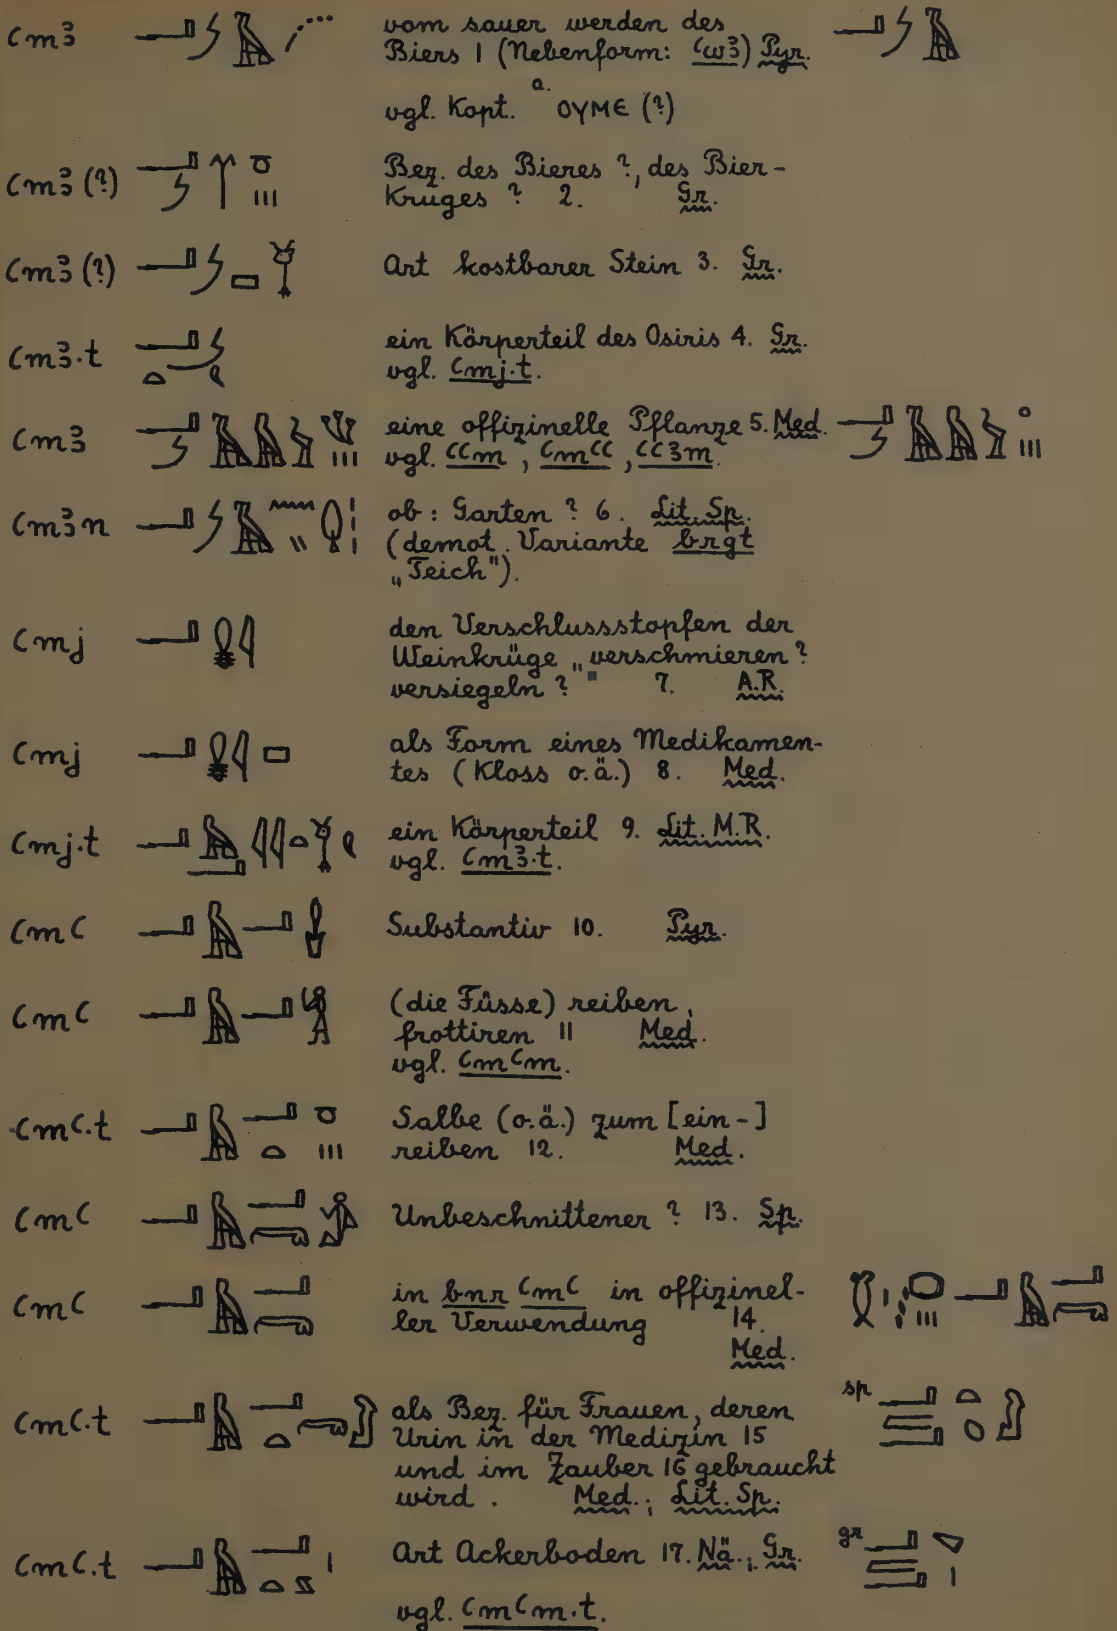 ꜥmꜣ vom sauer werden des
Biers 1 (Nebenform: ꜥwꜣ) Pyr.
a.
vgl. Kopt. ΟΥΜΕ (?)
ꜥmꜣ (?) Bez. des Bieres ?, des Bier-
Kruges ? 2. Gr.
ꜥmꜣ (?) Art kostbarer Stein 3. Gr.
ꜥmꜣ.t ein Körperteil des Osiris 4. Gr.
vgl. ꜥmj.t.
ꜥmꜣ eine offizinelle Pflanze 5. Med.
vgl. ꜥꜥm, ꜥmꜥꜥ, ꜥꜥꜣm.
ꜥmꜣn ob: Garten ? 6. Lit. Sp.
(demot. Variante brgt
„Teich").
ꜥmj den Verschlussstopfen der
Weinkrüge „verschmieren ?
versiegeln ?" 7. A.R.
ꜥmj als Form eines Medikamen-
tes (Kloss o.ä.) 8. Med.
ꜥmj.t ein Körperteil 9. Lit. M.R.
vgl. ꜥmꜣ.t.
ꜥmꜥ Substantiv 10. Pyr.
ꜥmꜥ (die Füsse) reiben,
frottiren 11 Med.
vgl. ꜥmꜥm.
ꜥmꜥ.t Salbe (o.ä.) zum [ein-]
reiben 12. Med.
ꜥmꜥ Unbeschnittener ? 13. Sp.
ꜥmꜥ in bnr ꜥmꜥ in offizinel-
ler Verwendung 14.
Med.
ꜥmꜥ.t als Bez. für Frauen, deren sp
Urin in der Medizin 15
und im Zauber 16 gebraucht
wird. Med.; Lit. Sp.
ꜥmꜥ.t Art Ackerboden 17. Nä.; Gr. gr
vgl. ꜥmꜥm.t.